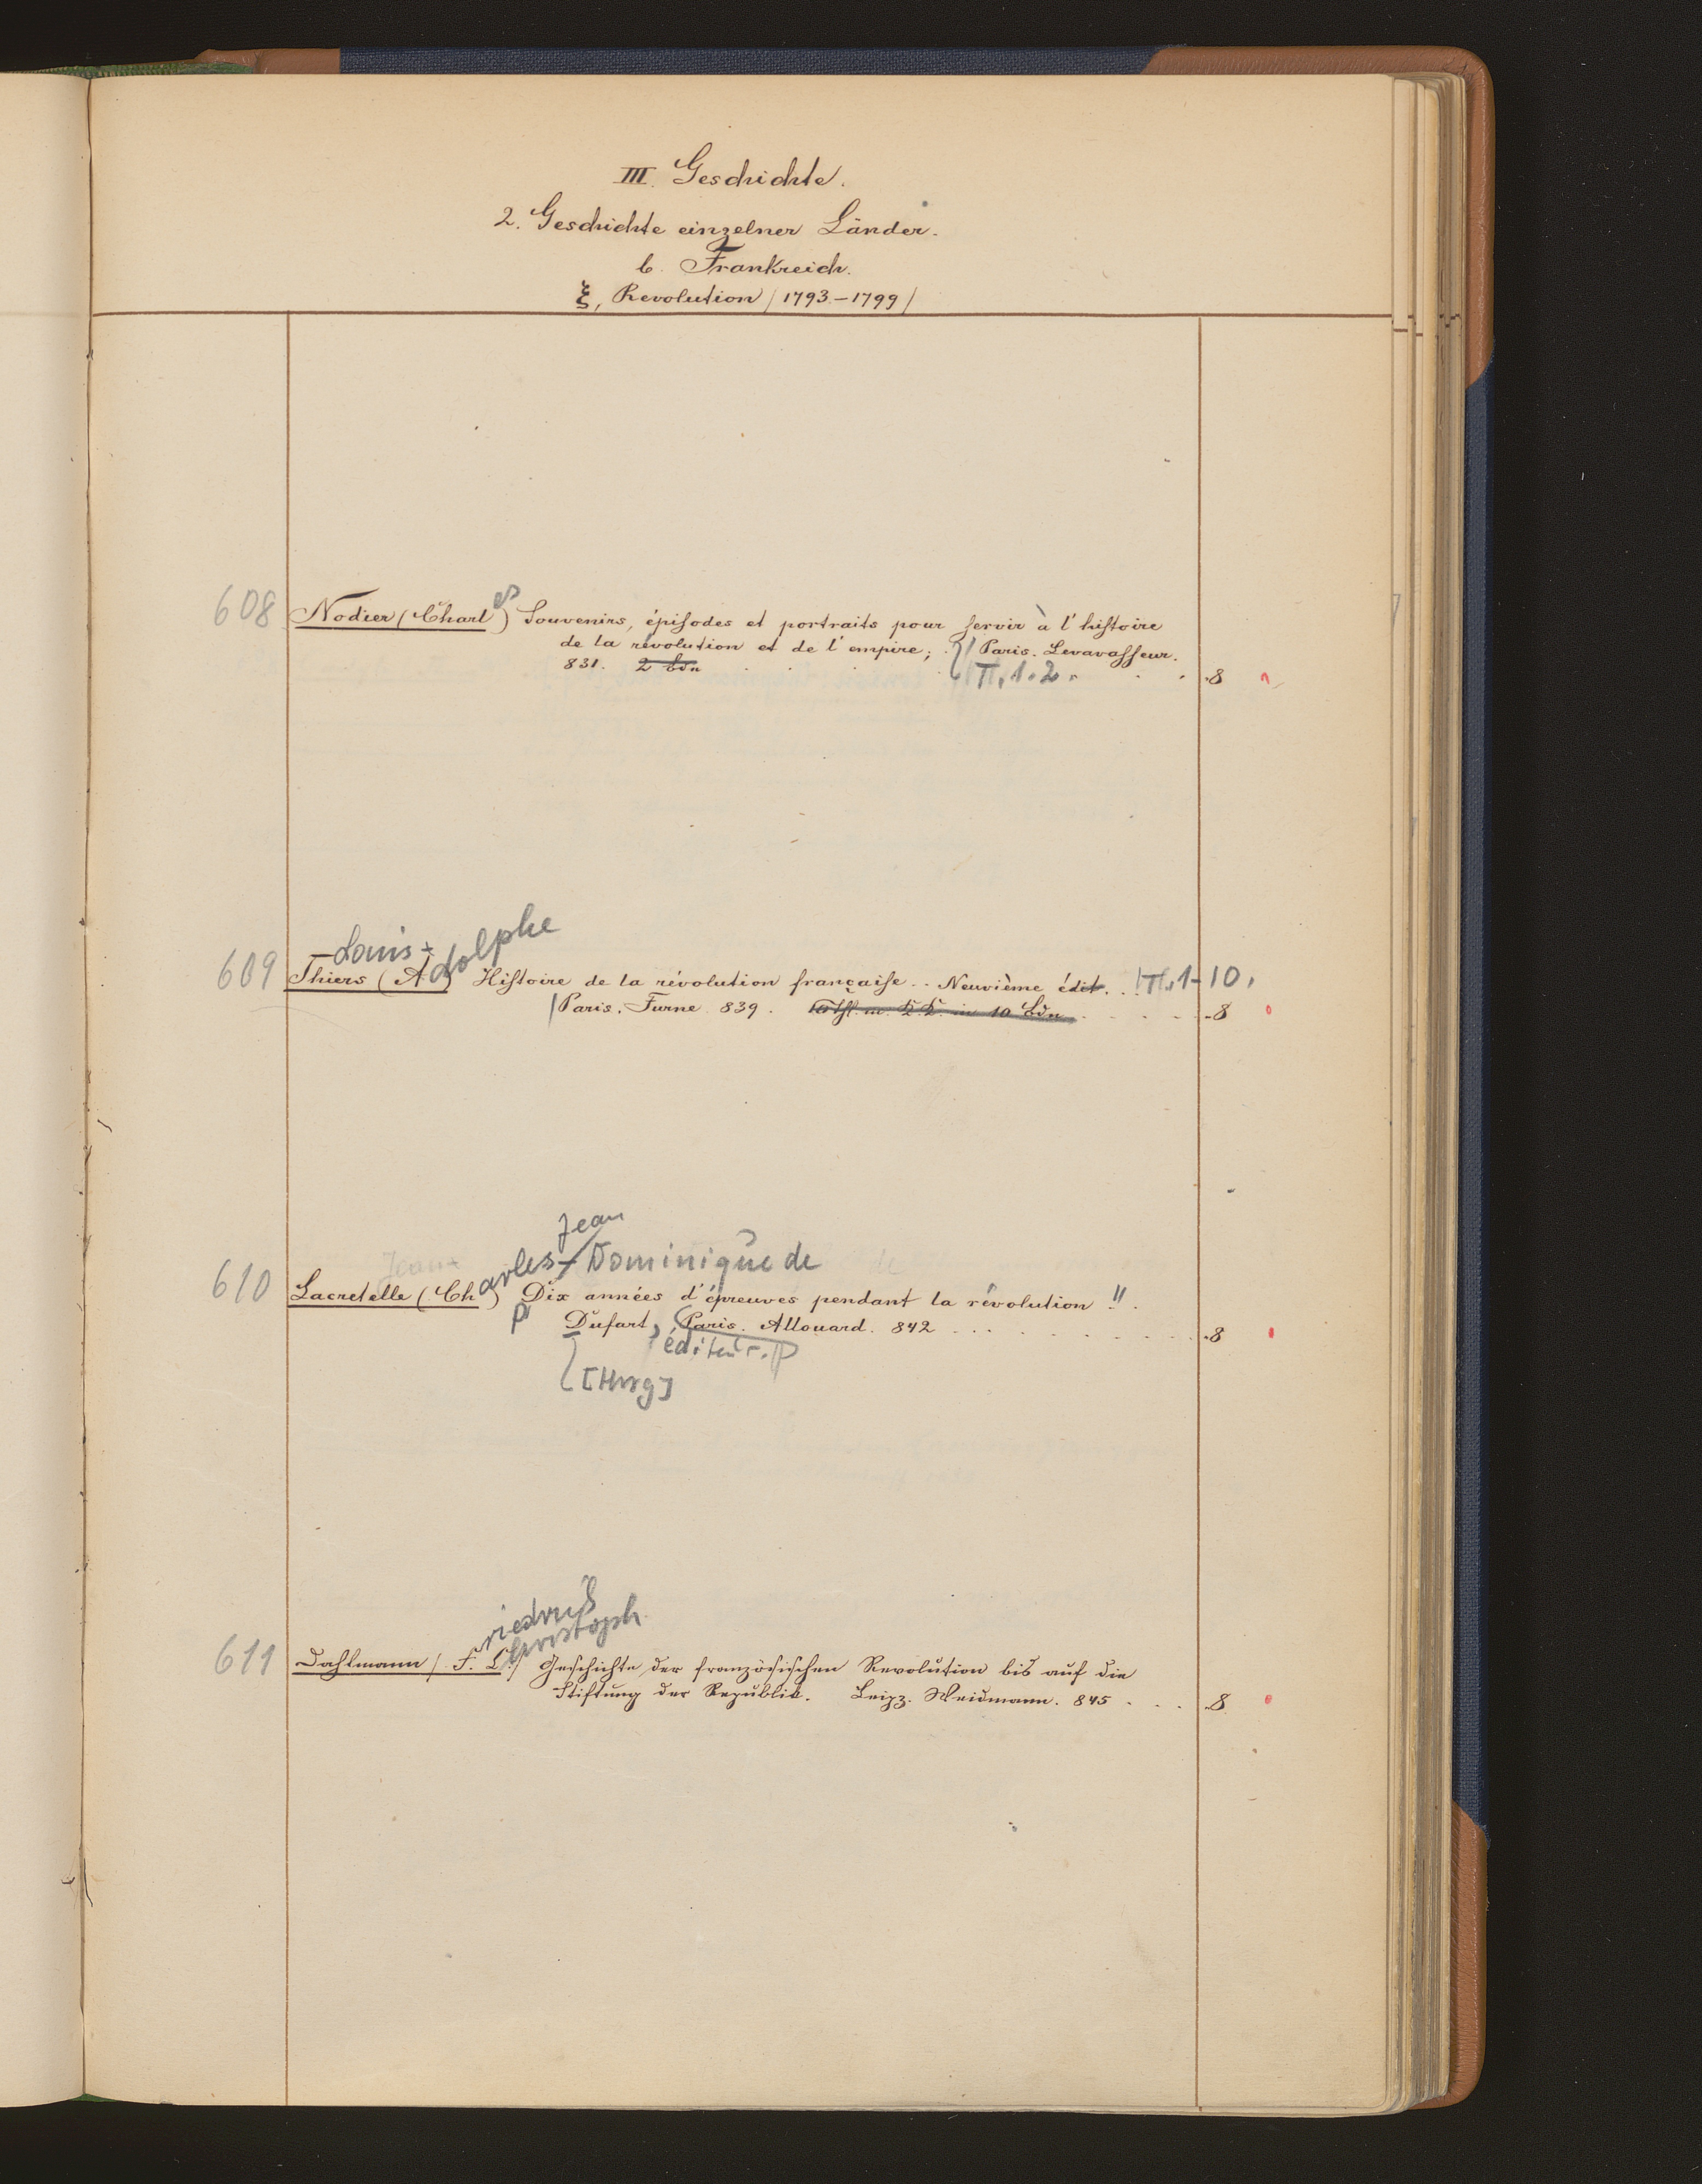 III. Geschichte.
2. Geschichte einzelner Länder.
b. Frankreich.
ξ, Revolution /1793–1799/
608 Nodier (Charles) Souvenirs, épisodes et portraits pour servir à l'histoire
de la révolution et de l'empire; Paris. Levavasseur.
831. 2 Bdn T. 1. 2. 8
Louis-
609 Thiers (Adolphe) Histoire de la révolution française.. Neuvième édit... T. 1-10.
Paris. Furne 839. in 10 Bdn 8
Jean
Jean- Dominique de
610 Lacretelle (Charles) Dix années d'épreuves pendant la révolution !!.
Dufart, Paris. Allouard. 842 8
éditeur.
[Hrsg]
611 Dahlmann / Friedrich Christoph / Geschichte der französischen Revolution bis auf die
Stiftung der Republik. Leipz. Weidmann. 845 8